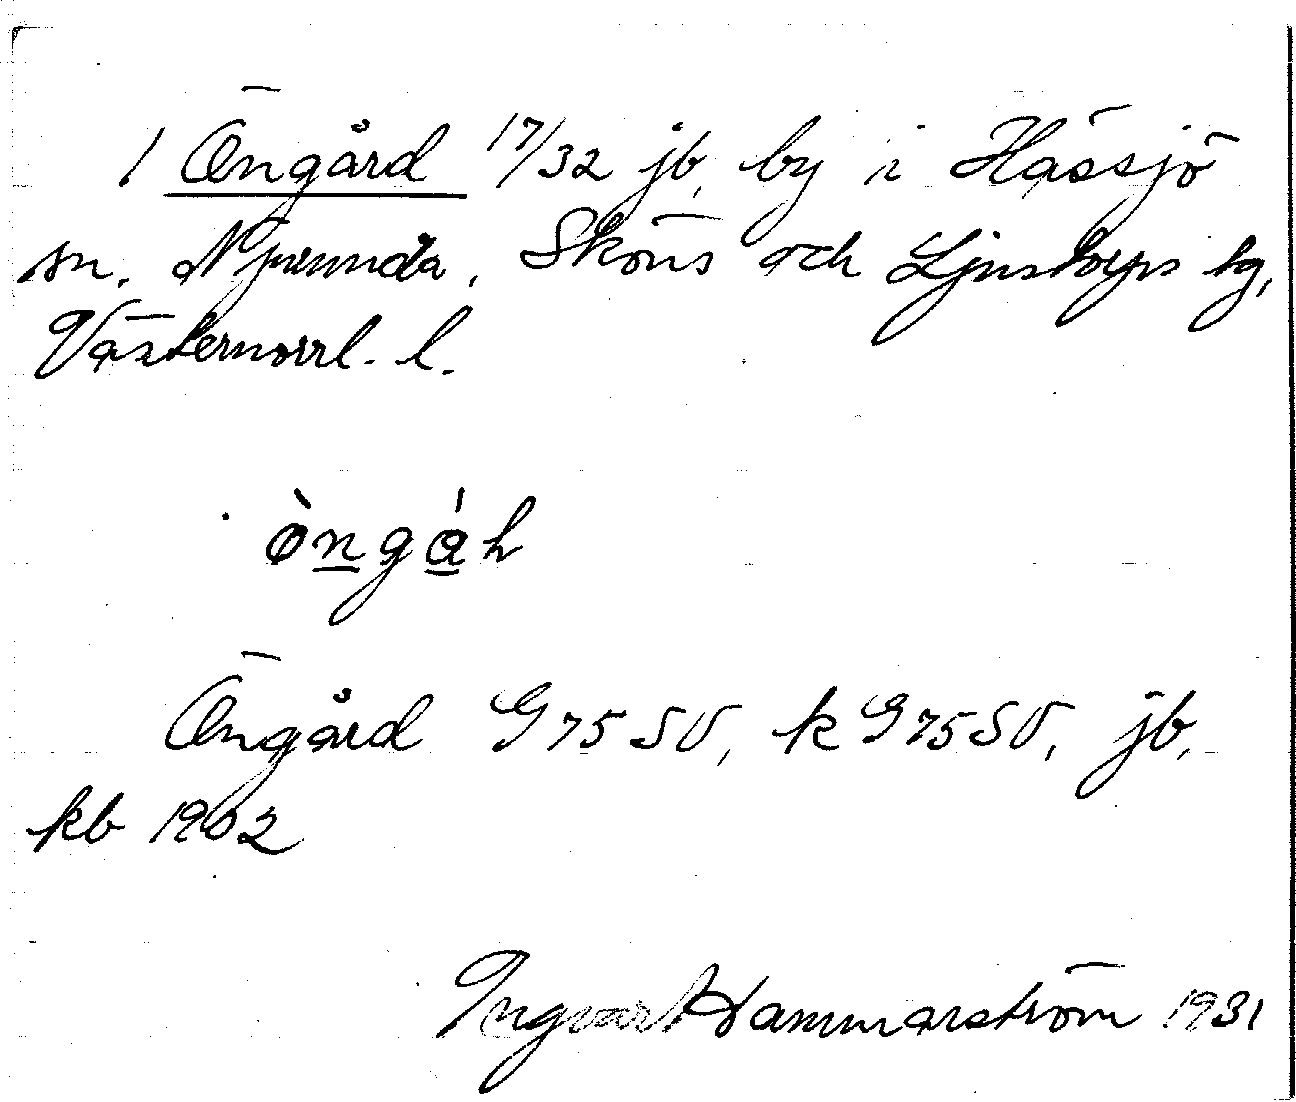 1 Öngård 17/32 jb, by i Hässjö
sn. Njurunda, Sköns och Ljustorps tg,
Västernorrl. l.
òngáh
Öngård G75SV, k G75SV, jb,
kb 1902
Ingvart Hammarström 1931